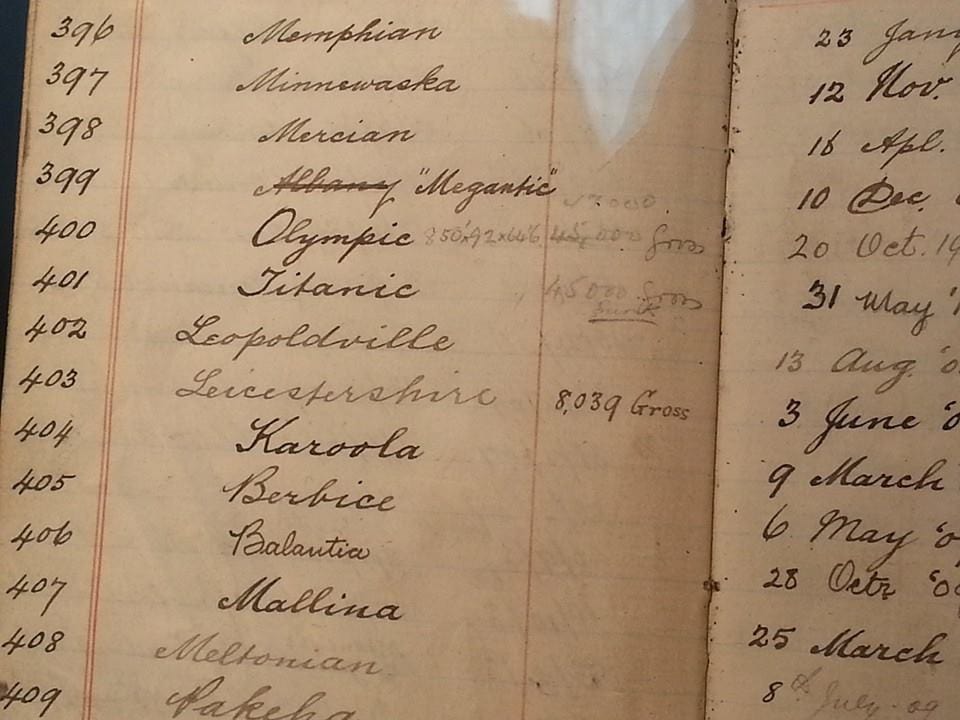 396 Memphian 23 Jany
397 Minnewaska 12 Nov.
398 Mercian 16 Apl.
399 Albany "Megantic" 10 Dec.
400 Olympic 850x92x64'6 45,000 Gross 20 Oct. 19
401 Titanic 45000 Gross 31 May '1
402 Leopoldville 13 Aug. '0
403 Leicestershire 8,039 Gross 3 June '0
404 Karoola 9 March
405 Berbice 6 May '0
406 Balantia 28 Octr '0
407 Mallina 25 March
408 Meltonian 8 July 09
409 Pakeha